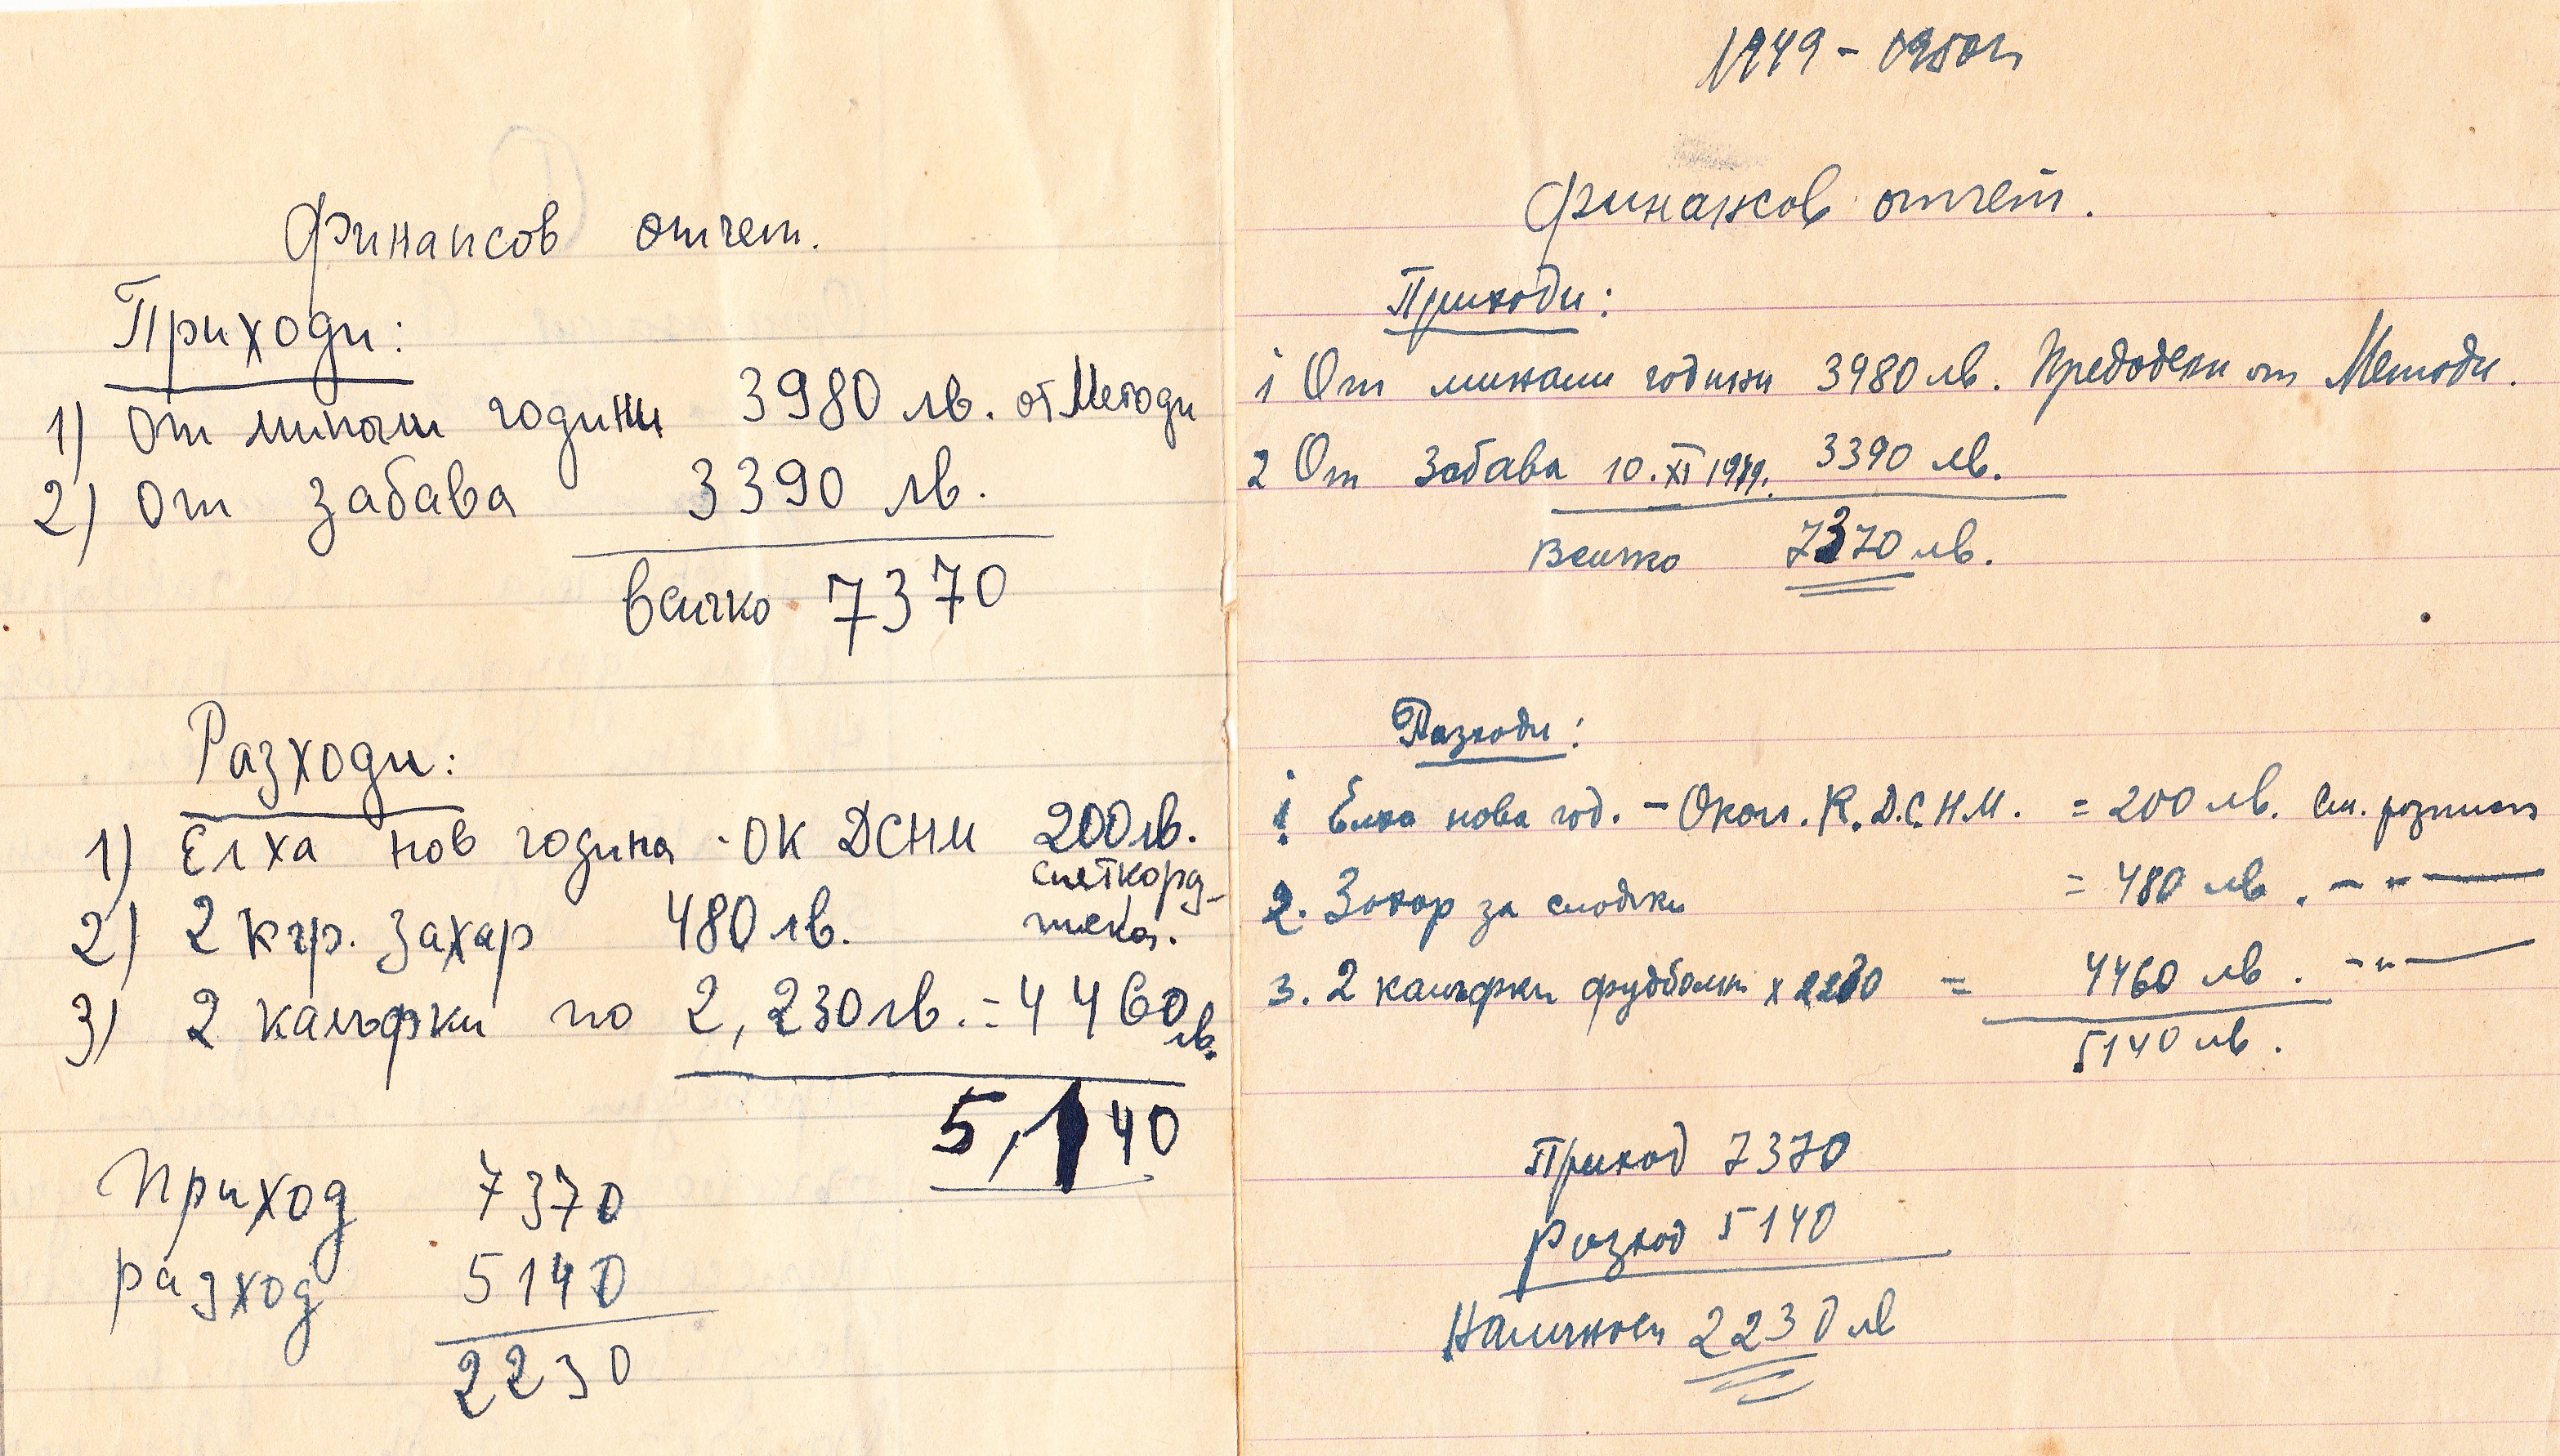 Финансов отчет.
Приходи:
1) От минали години 3980 лв. от Методи
2) От забава 3390 лв.
всичко 7370
Разходи:
1) Елха нов година - ОК ДСНМ 200 лв.
2) 2 кгр. захар 480 лв.
3) 2 калъфки по 2,230 лв. = 4460 лв.
5,140
Приход 7370
разход 5140
2230
1949 - 1950 г.
Финансов отчет.
Приходи:
1 От минали години 3980 лв. Предадени от Методи.
2 От забава 10.XI 1949. 3390 лв.
Всичко 7370 лв.
Разходи:
1 Елха нова год. - Окол. К.Д.С.Н.М. = 200 лв. См. розписк
2. Захар за сладки = 480 лв. - " -
3. 2 калъфки футболни х 2230 = 4460 лв. - " -
5140 лв.
Приход 7370
Разход 5140
Наличност 2230 лв